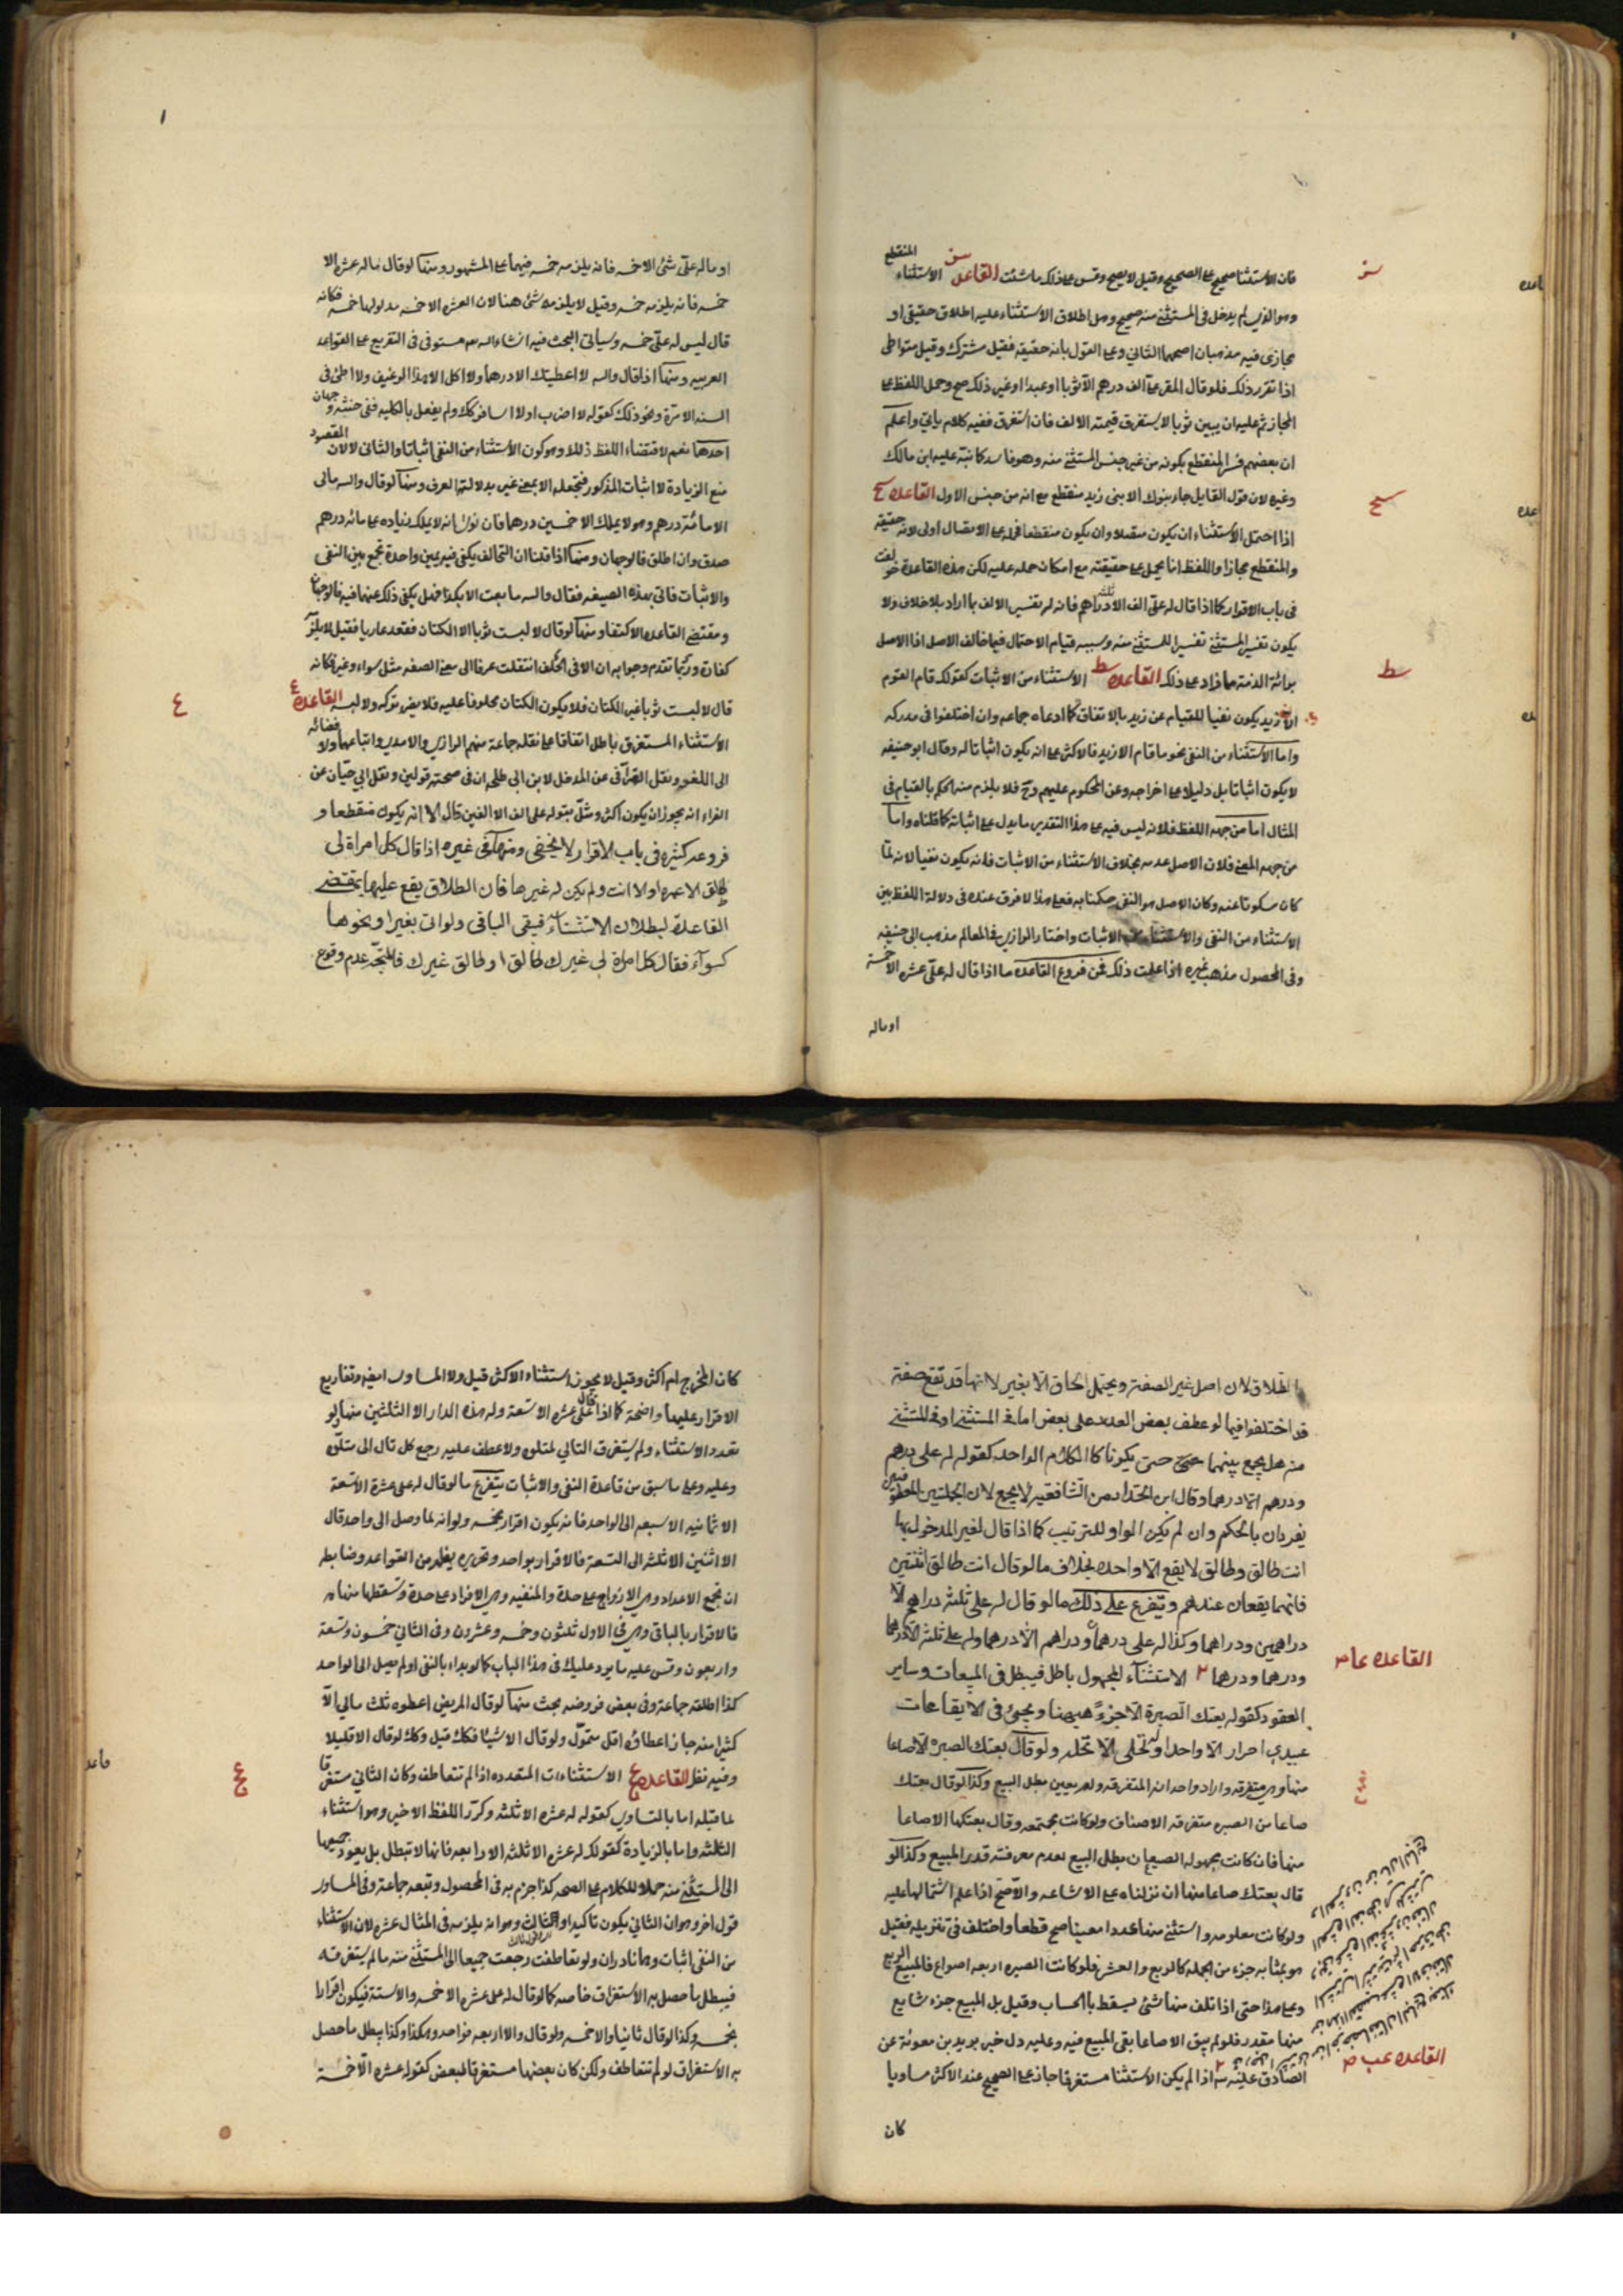 فان الاستثنا صحيح على الصحيح وقيل لا يصح وقس على ذلك ما شئت القاعدة سز الاستثناء المنقطع
وهو الذي لم يدخل في المستثنى منه صحيح وهل اطلاق الاستثناء عليه اطلاق حقيقي او
مجازي فيه مذهبان اصحهما الثاني وعلى القول بانه حقيقة فقيل مشترك وقيل متواطى
اذا تقرر ذلك فلو قال المقر علي الف درهم الا ثوبا او عبدا او غير ذلك صح وحمل اللفظ على
المجاز ثم عليه ان يبين ثوبا لا يستغرق قيمته الالف فان استغرق ففيه كلام ياتي واعلم
ان بعضهم فسر المنقطع بكونه من غير جنس المستثنى منه وهو فاسد كما نبه عليه ابن مالك
وغيره لان قول القايل جاء بنوك الا بنى زيد منقطع مع انه من جنس الاول القاعده سح
اذا احتمل الاستثناء ان يكون متصلا وان يكون منقطعا فحمله على الاتصال اولى لانه حقيقة
والمنقطع مجازا واللفظ انما يحمل على حقيقته مع امكان حمله عليه لكن هذه القاعدة خولفت
في باب الاقرار كما اذا قال له علي الف الا ثلثة دراهم فانه له تفسير الالف بما اراد بلا خلاف ولا
يكون تفسير المستثنى تفسيرا للمستثنى منه وسببه قيام الاحتمال فيما خالف الاصل اذا الاصل
برائة الذمة مما زاد على ذلك القاعده سط الاستثناء من الاثبات كقولك قام القوم
الا زيد يكون نفيا للقيام عن زيد بالاتفاق كما ادعاه جماعه وان اختلفوا في مدركه
واما الاستثناء من النفي نحو ما قام الا زيد فالاكثر على انه يكون اثباتا له وقال ابو حنيفه
لا يكون اثباتا بل دليلا على اخراجه وعن المحكوم عليهم وح فلا يلزم منه الحكم بالقيام في
المثال اما من جهة اللفظ فلانه ليس فيه على هذا التقدير ما يدل على اثباته كما قلناه واما
من جهه المعنى فلان الاصل عدمه بخلاف الاستثناء من الاثبات فانه يكون نفيا لانه لما
كان سكوتا عنه وكان الاصل هو النفي حكمنا به فعلى هذا لا فرق عنده في دلالة اللفظ بين
الاستثناء من النفي والاستثناء من الاثبات واختار الرازي في المعالم مذهب ابي حنيفه
وفي المحصول مذهب غيره اذا علمت ذلك فمن فروع القاعده ما اذا قال له علي عشره الا خمسة
او ماله
سز
سح
سط
او ماله علي شئ الا خمسه فانه يلزمه خمسه فيهما على المشهور ومنها لو قال ماله عشره الا
خمسه فانه يلزمه خمسه وقيل لا يلزمه شئ هنا لان العشره الا خمسه مدلولها خمسه فكانه
قال ليس له علي خمسه وسياتي البحث فيه انشاء الله مستوفى في التفريع على القواعد
العربيه ومنها اذا قال والله لا اعطيتك الا درهما ولا اكل الا هذا الرغيف ولا اطئ في
السنه الا مرة ونحو ذلك كقوله لا اضرب او لا اسافر كذا ولم يفعل بالكليه ففي حنثه وجهان
احدهما نعم لاقتضاء اللفظ ذلك وهو كون الاستثناء من النفي اثباتا والثاني لا لان المقصود
منع الزيادة لا اثبات المذكور فتجعله الا بمعنى غير بدلالة العرف ومنها لو قال والله مالي
الا مائة درهم وهو لا يملك الا خمسين درهما فان نوى انه لا يملك زياده على مائه درهم
صدق وان اطلق فالوجهان ومنها اذا قلنا ان التحالف يكفي فيه يمين واحدة تجمع بين النفي
والاثبات فاتى بهذه الصيغه فقال والله ما بعت الا بكذا فهل يكفي ذلك عنهما فيه الوجهان
ومقتضى القاعده الاكتفا ومنها لو قال لا لبست ثوبا الا الكتان فقعد عاريا فقيل لا يلزمه
كفارة وربما تقدم وجوابه ان الا في الحلف انتقلت عرفا الى معنى الصفه مثل سواء وغير فكانه
قال لا لبست ثوبا غير الكتان فلا يكون الكتان محلوفا عليه فلا يضر تركه ولا لبسه القاعده ع
الاستثناء المستغرق باطل اتفاقا على ما نقله جماعة منهم الرازي والامدي واتباعهما ولافضائه
الى اللغو ونقل القرافي عن المدخل لابن ابي طلحه ان في صحته قولين ونقل ابي حيان عن
الفراء انه يجوز ان يكون اكثر ومثل بقوله علي الف الا الفين قال الا انه يكون منقطعا و
فروعه كثيره في باب الاقرار لا يخفى ومنها في غيره اذا قال كل امراة لي
طالق الا عمره او لا انت ولم يكن له غيرها فان الطلاق يقع عليها بمقتضى
القاعدة لبطلان الاستثناء فيبقى الباقي ولو اتى بغير او نحوها
كسواء فقال كل امراة لي غيرك طالق او طالق غيرك فالمتجه عدم وقوع
ع
الطلاق لان اصل غير الصفة ويحتمل الحاق الا بغير لانها قد تقع صفة
قد اختلفوا فيما لو عطف بعض العدد على بعض اما في المستثنى او في المستثنى
منه هل يجمع بينهما حتى يكونا كالكلام الواحد كقوله له علي درهم
ودرهم الا درهما وقال ابن الحداد من الشافعيه لا يجمع لان الجملتين المعطوفتين
يفردان بالحكم وان لم يكن الواو للترتيب كما اذا قال لغير المدخول بها
انت طالق وطالق لا يقع الا واحده بخلاف ما لو قال انت طالق اثنتين
فانهما يقعان عندهم ويتفرع على ذلك ما لو قال له علي ثلثه دراهم الا
درهمين ودرهما وكذا له علي درهما ودراهم الا درهما وله علي ثلثه الا درهما
ودرهما ودرهما الاستثناء المجهول باطل فيبطل في المبيعات وساير
العقود كقوله بعتك الصبرة الا جزءً هيهنا ويجئ في الايقاعات
عبيدي احرار الا واحدا وله نخلى الا نخله ولو قال بعتك الصبره الا صاعا
منها وهي متفرقه واراد واحدا من المتفرقه ولم يعين بطل البيع وكذا لو قال بعتك
صاعا من الصبره متفرقه الاصناف ولو كانت مجتمعه وقال بعتكها الا صاعا
منها فان كانت مجهوله الصيعان بطل البيع لعدم معرفته قدر المبيع وكذا لو
قال بعتك صاعا منها ان نزلناه على الاشاعه والاصح اذا علم اشتمالها عليه
ولو كانت معلومه واستثنى منها عددا معينا صح قطعا واختلف في تنزيله فقيل
هو بمثابه جزء من الجمله كالربع والعشر فلو كانت الصبره اربعه اصواع فالمبيع الربع
وعلى هذا حتى اذا تلف منها شئ يسقط بالحساب وقيل بل المبيع جزء شايع
منها مقدر فلو لم يبق الا صاعا بقي المبيع فيه وعليه دل خبر بريد بن معوية عن
الصادق عليه اذا لم يكن الاستثنا مستغرقا جاز على الصحيح عند الاكثر مساويا
كان
القاعده عا
القاعده عب
كان المخرج ام اكثر وقيل لا يجوز استثناء الاكثر قيل ولا المساوي ايضا وتفاريع
الاقرار عليهما واضحة كما اذا قال علي عشره الا تسعة وله هذه الدار الا الثلثين منها لو
تعدد الاستثناء ولم يستغرق التالي لمتلوه ولا عطف عليه رجع كل تال الى متلوه
وعليه وعلى ما سبق من قاعدة النفي والاثبات يتفرع ما لو قال له علي عشرة الا تسعة
الا ثمانيه الا سبعه الى الواحد فانه يكون اقرار بخمسه ولو انه لما وصل الى واحد قال
الا اثنين الا ثلثه الى التسعة فالاقرار بواحد وتحريره يظهر من القواعد وضابطه
ان تجمع الاعداد وهي الازواج على حدة والمنفيه وهي الافراد على حدة وتسقطها منها
فالاقرار بالباقي وهي في الاول ثلثون وخمسه وعشرون وفي الثاني خمسون وتسعة
واربعون وقس عليه ما يرد عليك في هذا الباب كما لو بداء بالنفي او لم يصل الى الواحد
كذا اطلقه جماعة وفي بعض فروضه بحث منها لو قال المريض اعطوه ثلث مالي الا
كثيرا منه جاز اعطاؤه اقل متمول ولو قال الا شيئا فكك قيل وكك لو قال الا قليلا
وفيه نظر القاعده عج الاستثناءات المتعدده اذا لم تتعاطف وكان الثاني مستغرقا
لما قبله اما بالتساوي كقوله له عشره الا ثلثه وكرر اللفظ الاخير وهو استثناء
الثلثه واما بالزيادة كقولك له عشره الا ثلثه الا اربعه فانها لا تبطل بل يعود جميعها
الى المستثنى منه حملا للكلام على الصحه كذا جزم به في المحصول وتبعه جماعة وفي المساوي
قول اخر وهو ان الثاني يكون تاكيدا والثالث وهو انه يلزمه في المثال عشره لان الاستثناء
من النفي اثبات وهما نادران ولو تعاطفت رجعت جميعا الى المستثنى منه ما لم يستغرقه
فيبطل ما حصل به الاستغراق خاصه كما لو قال له علي عشره الا خمسه والا ستة فيكون اقرارا
بخمسه وكذا لو قال ثانيا والا خمسه ولو قال والا اربعه فواحد وهكذا وكذا يبطل ما حصل
به الاستغراق لو لم تتعاطف ولكن كان بعضها مستغرقا لبعض كقوله عشره الا خمسة
عج